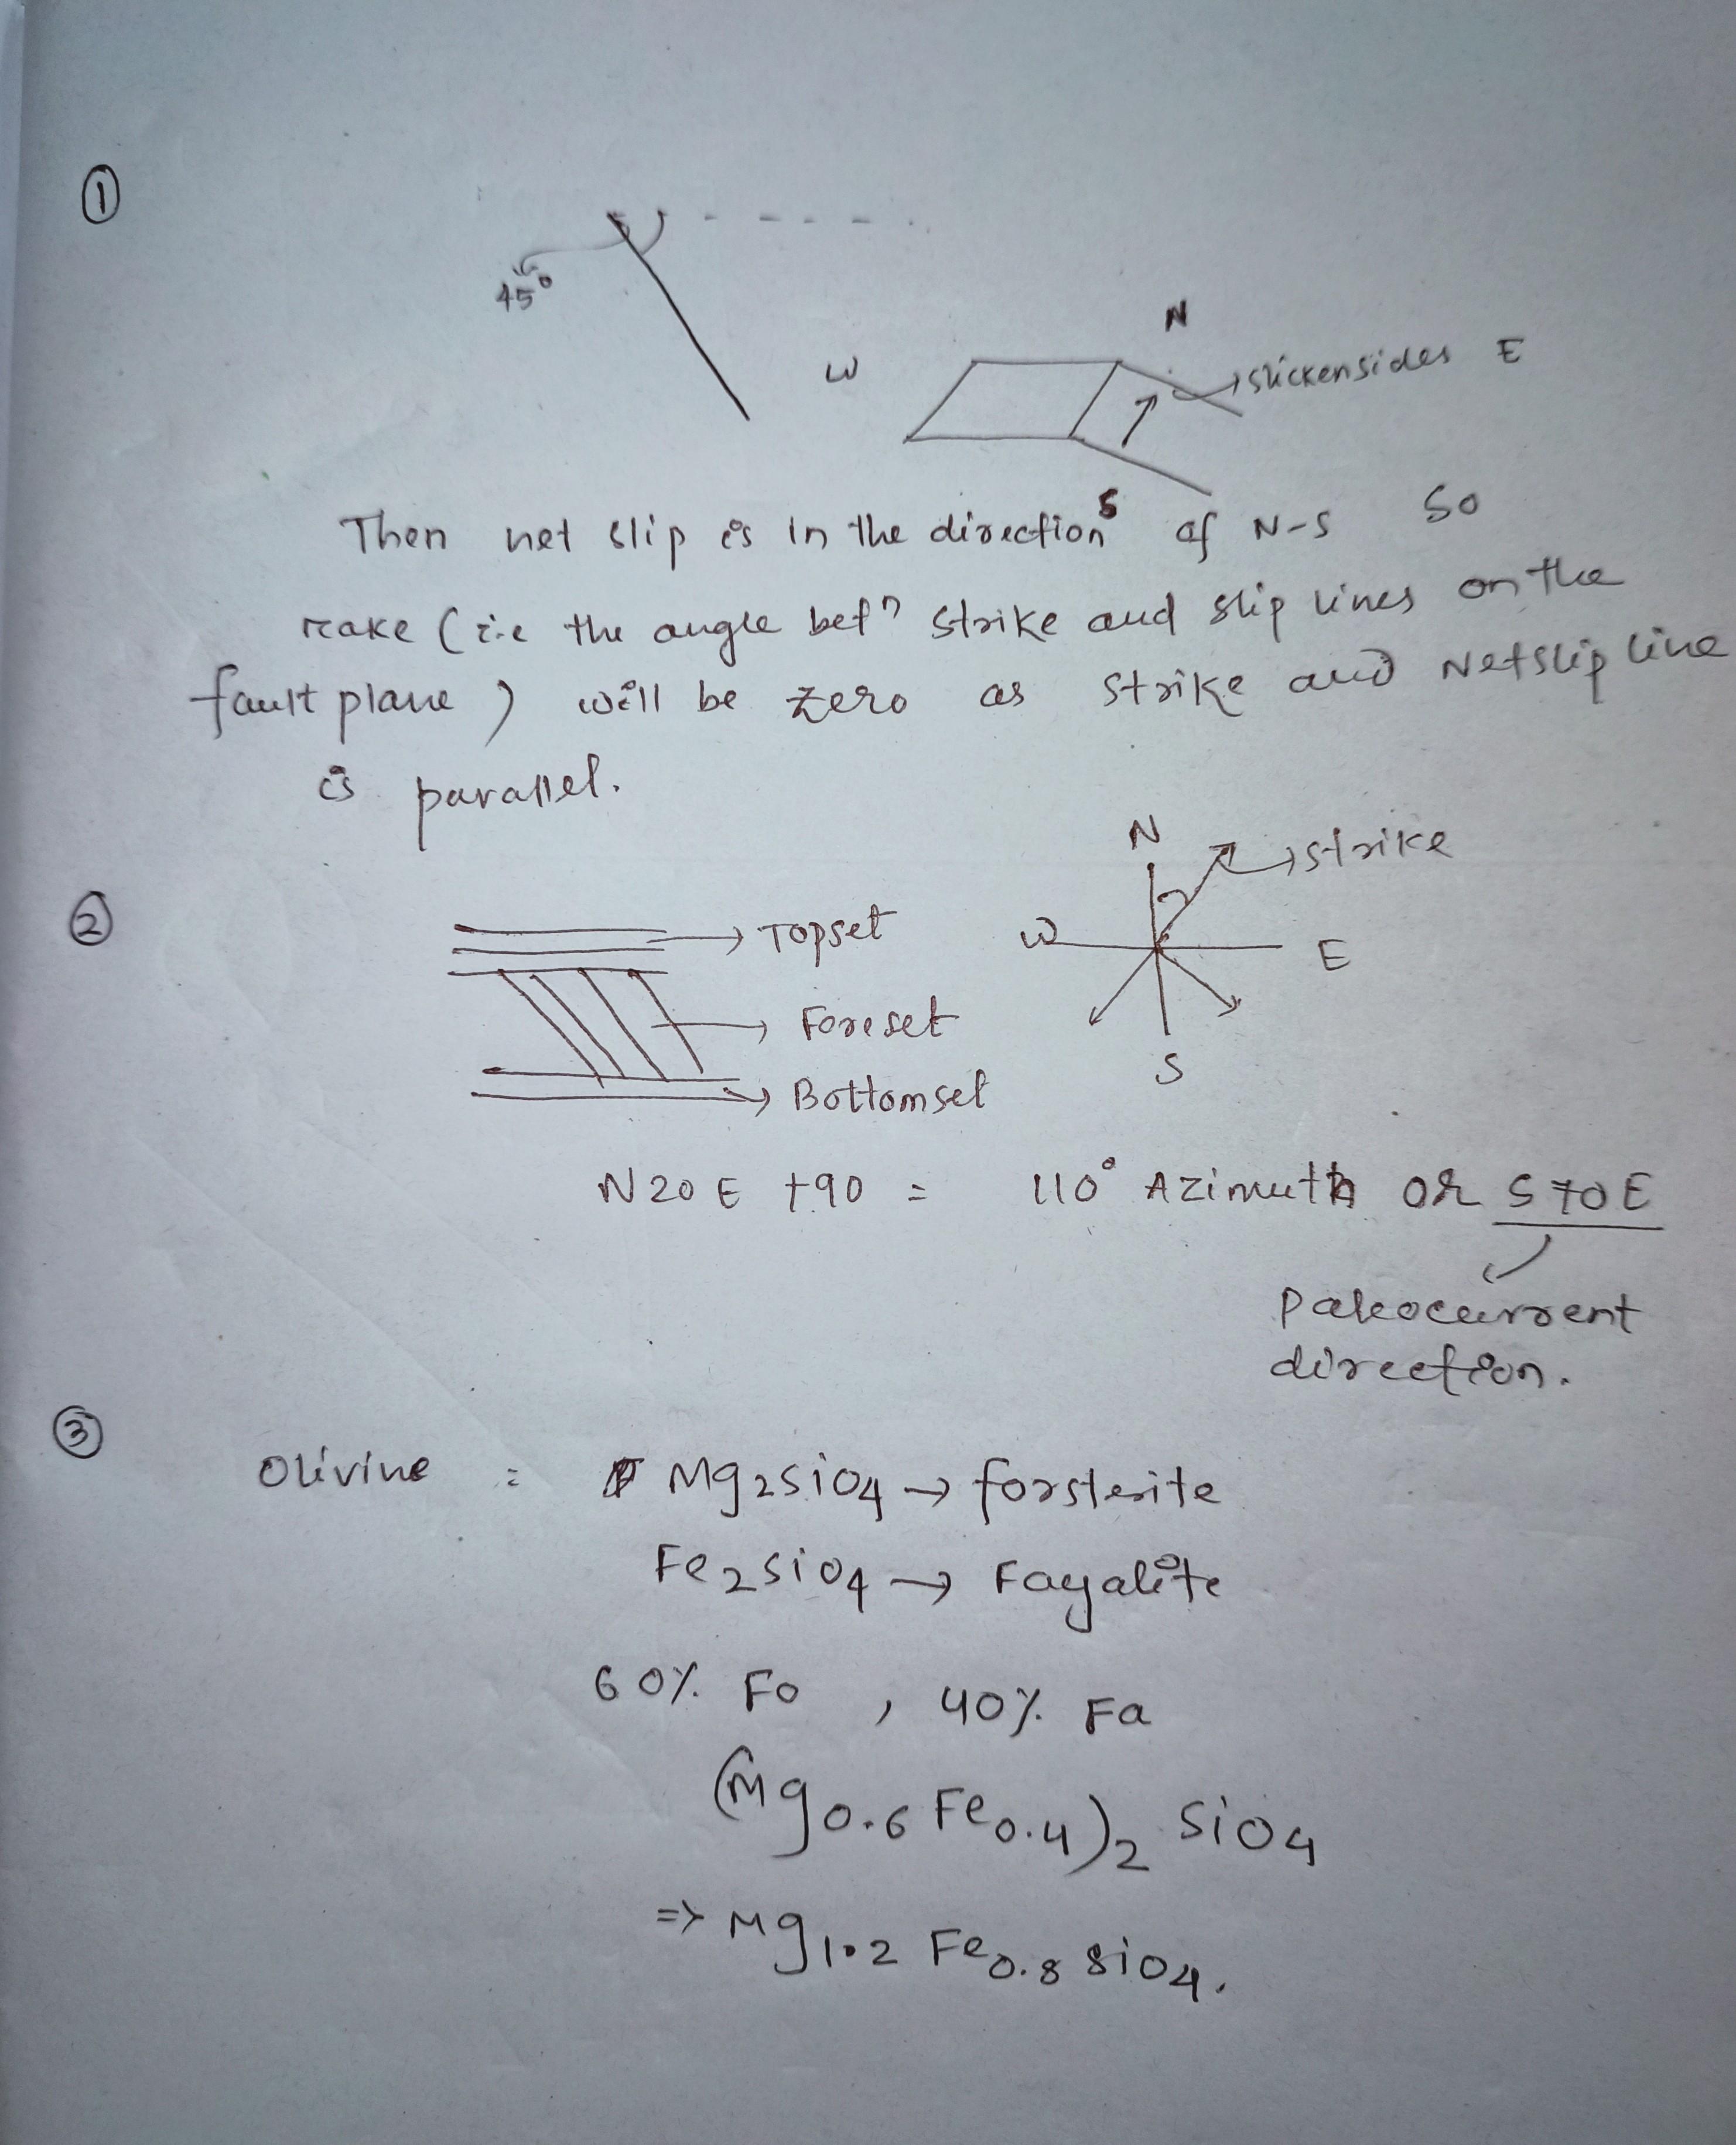 ①
45°
N
W
slickensides E
S
Then net slip is in the direction of N-S So
rake (i.e the angle betn strike and slip lines on the
fault plane) will be zero as strike and Netslip line
is parallel.
②
N
strike
Topset
W
E
Foreset
S
Bottomset
N20E +90 = 110° Azimuth or S70E
Paleocurrent
direction.
③
Olivine : Mg2SiO4 → forsterite
Fe2SiO4 → Fayalite
60% Fo , 40% Fa
(Mg0.6 Fe0.4)2 SiO4
=> Mg1.2 Fe0.8 SiO4.